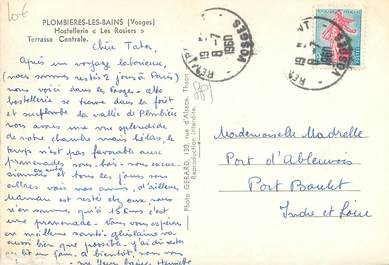 PLOMBIERES-LES-BAINS (Vosges)
Hostellerie « Les Rosiers »
Terrasse Centrale.
Chère Tata,
Après un voyage laborieux,
(nous sommes restés 2 jours à Paris)
nous voici dans les Vosges. Cette
hostellerie se trouve dans la forêt
et surplombe la vallée de Plombières
nous avons une vue splendide
de notre chambre mais hélas, le
temps n'est pas favorable aux
promenades sous-bois. nous
et tous les jours nous
allons voir nos amis, d'ailleurs
Maman est restée chez eux nous
n'en sommes qu'à 15 kms c'est
une promenade. Nous vous espérons
en meilleure santé Ghislaine va
aussi bien que possible. j'ai
au plus faim, à bientôt,
Henriette
Photo GERARD, 130, rue d'Alsace, Thaon
Reproduction interdite.
8-7
1960
VOSGES
8-7
1960
VOSGES
Mademoiselle Madrelle
Port d'Ablevois
Port Boulet
Indre et Loire